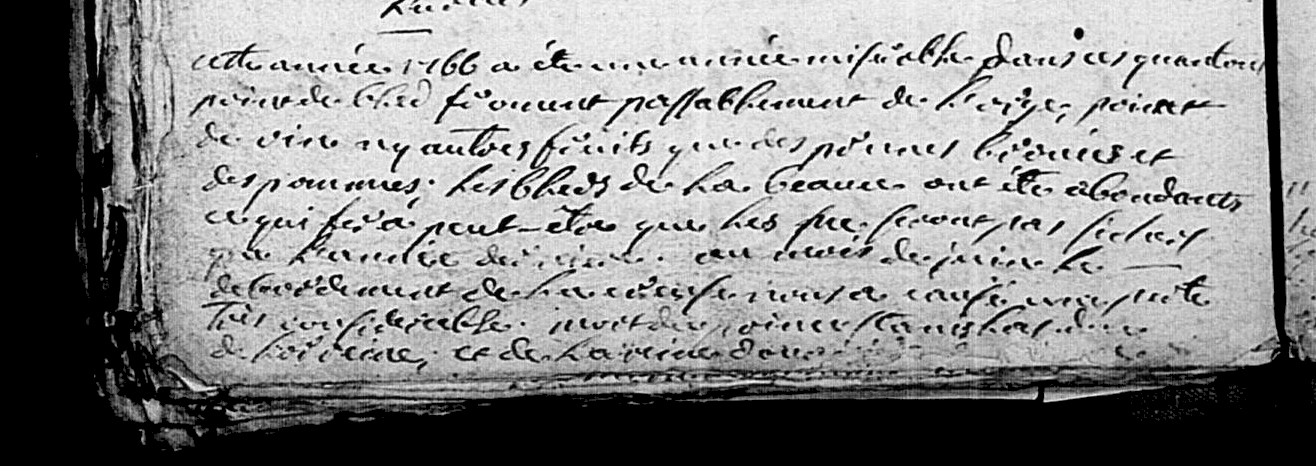 cette année 1766 a été une année misérable dans ces quantons
point de bled froment passablement de l'orge, point
de vin ny autres fruits que des prunes et
des pommes. les bleds de la beauce ont été abondants
ce qui fera peut-être que les ne seront pas si chers
que l'année derniere. au mois de juin le
debordement de la creuse nous a causé une perte
très considerable. mort du roi stanislas duc
de loreine, et de la reine